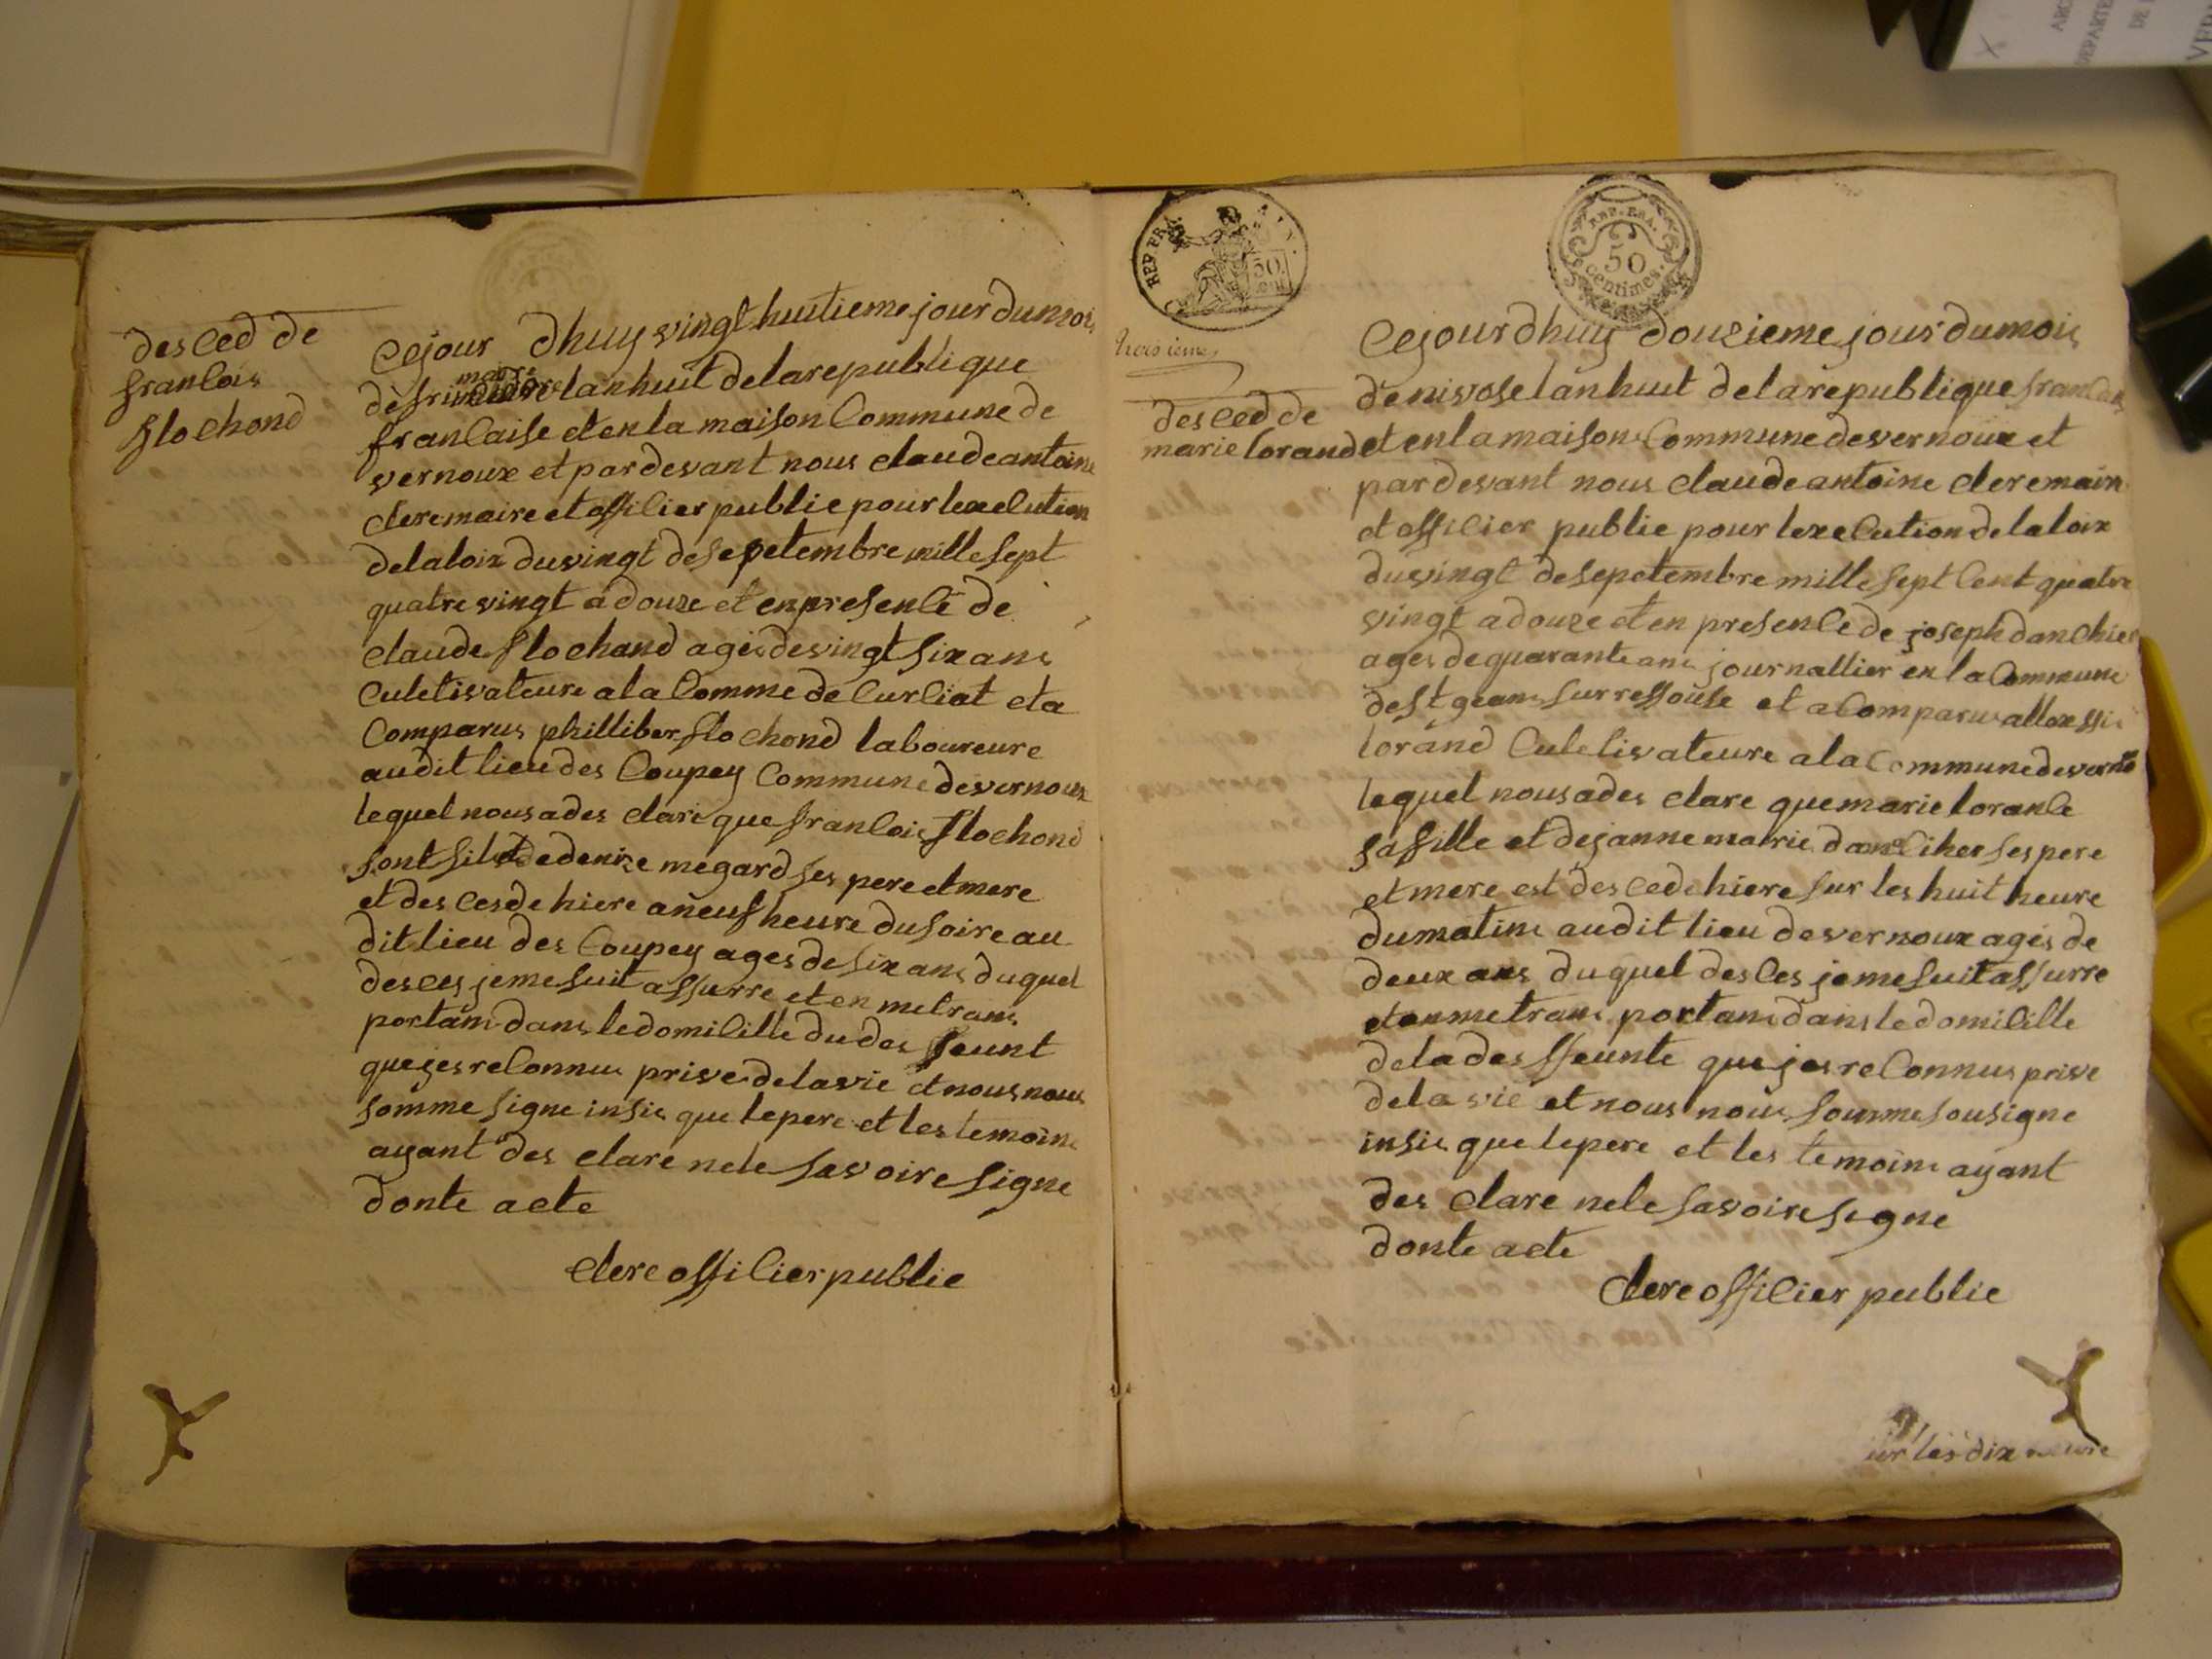 desced de
francois
flochond
cejour dhuy vingt huitieme jour dumois
defrimaire lanhuit delarepublique
francaise etenla maison Commune de
vernoux et pardevant nous claudeantoine
cleremaire et officier publie pour lexecution
delaloix duvingt desepetembre mille sept
quatre vingt a douze et enpresence de
claude flochand ages devingt six ans
Culetivateure ala Comme de Curciat eta
Comparus philliber flochond laboureure
audit lieu des Coupey Commune devernoux
lequel nousades clare que francois flochond
sont fils dedenize megard ses pere etmere
et des cesde hiere aneuf heure dusoire au
dit lieu des Coupey ages de six ans duquel
desces jemesuit assurre et en metrans
portans dans ledomicille dudes ffeunt
quejesreconnus prive delavie et nousnous
somme signe insis que lepere et les temoins
ayant des clare nele savoire signe
donte acte
clere officier publie
REP. FRA.
50
cent
troisieme
REP. FRA.
50
centimes.
desced de
marie lorand
Cejourdhuy douzieme jour dumois
denivose lanhuit delarepublique
etenlamaison Commune devernoux et
pardevant nous claudeantoine cleremaire
et officier publie pour lexecution delaloix
duvingt desepetembre mille sept Cent quatre
vingt a douze et en presence de joseph danchier
ages dequarante ans journallier en la Commune
dest geans sur ressouse et a Comparus
lorand Culetivateure ala Commune devernoux
lequel nousades clare quemarie lorance
safille et dejanne marie ses pere
et mere est des cede hiere sur les huit heure
dumatins audit lieu devernoux ages de
deux ans duquel desces jemesuit assurre
etenmetrans portans dans ledomicille
deladesffeunte que jesreconnus prive
dela vie et nous nous somme sousigne
insis que lepere et les temoins ayant
des clare nele savoire signe
donte acte
clere officier publie
sur les dix heure
ARC
DEPARTE
DE
VER